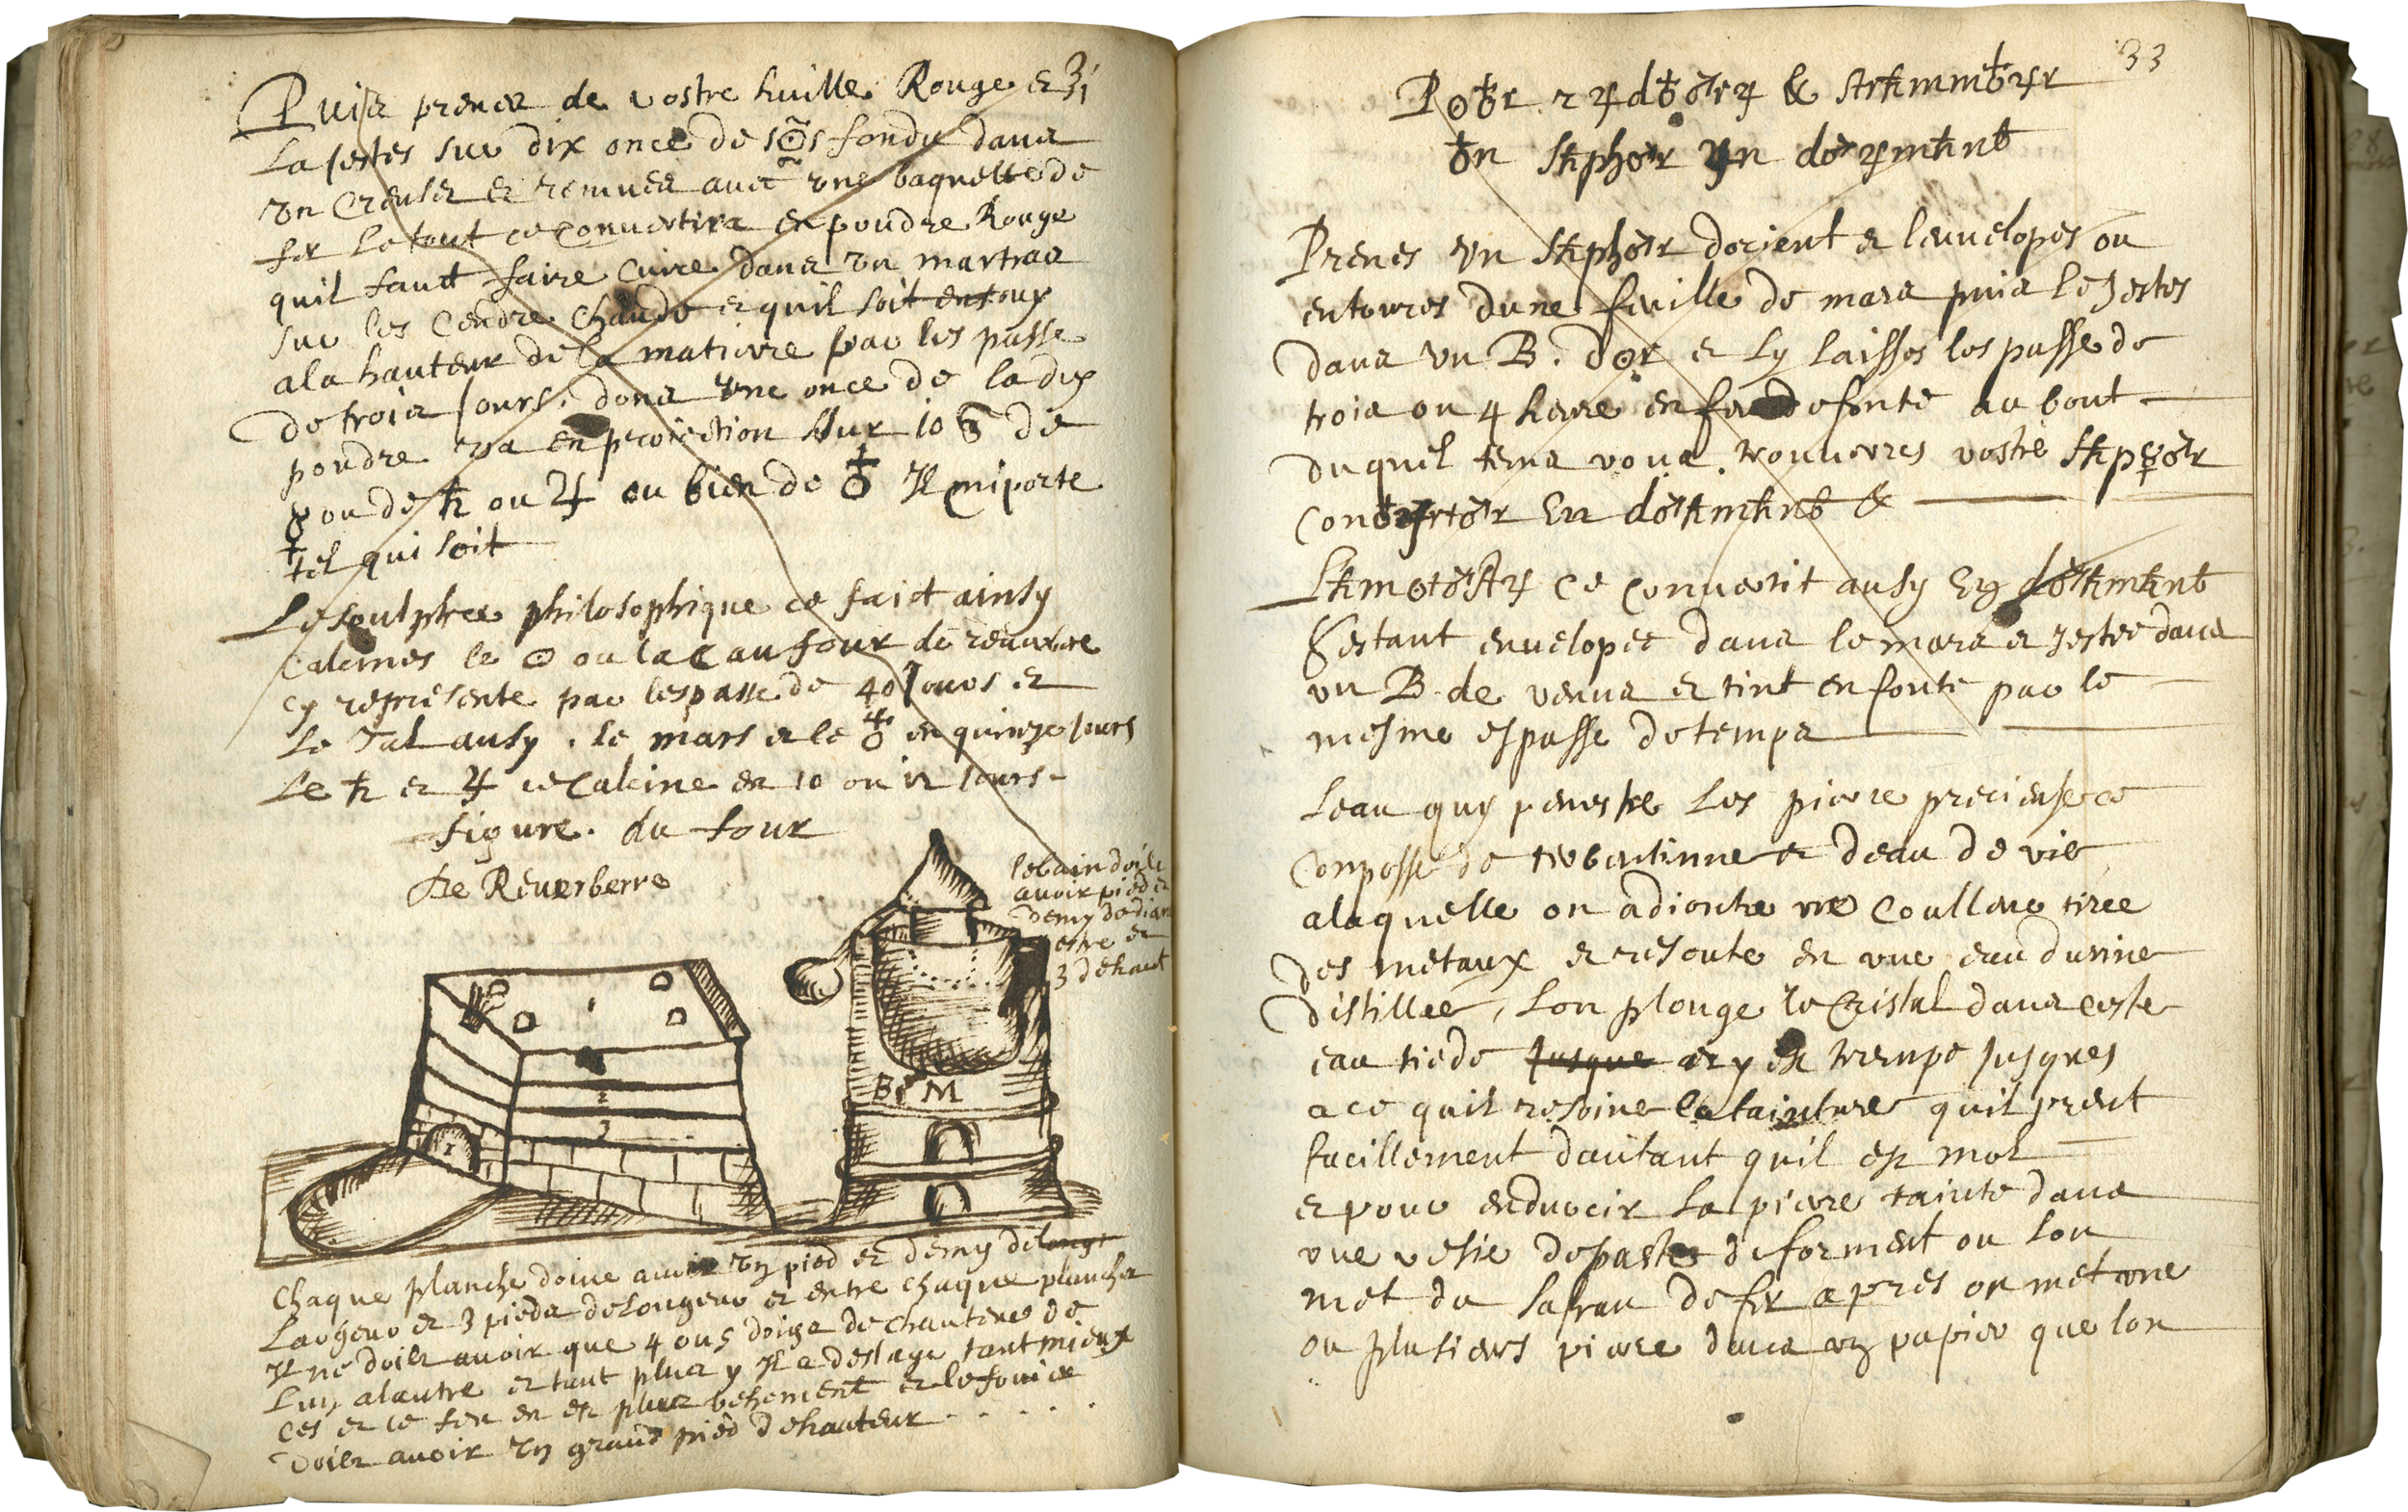 Puis prenes de vostre huille Rouge et ʒi
La jettes sur dix once de s☉s fondu dans
vn Creuset et remues avec vne baguette de
fer le tout ce convertira en poudre Rouge
quil faut faire cuire dans vn martras
sur les Cendre chaude et quil soit enfouy
a la hauteur de la matiere par les passe
de trois jours, dons vne once de ladix
poudre va en projection sur 10 de
☿ ou de ♄ ou ♃ ou bien de ♁ Il miporte
tel qui soit
Le soulphre philosophique ce faict ainsy
Calcines le ☉ ou la ☾ au four de reverbere
cy represente par lespasse de 40 Jours et
Le Tal ausy. le mars et le ♁ en quinze Jours
Le ♄ et ♃ ce Calcine en 10 ou 12 Jours-
figure. du four
De Reverberre
le bain doibt
avoir pied et
demy de diam
etre et
3 de haut
1
2
3
1
B M
Chaque planche doive avoir vn pied et demy de longt
Largeur et 3 pieds de longeur et entre chaque planche
Il ne doibt avoir que 4 ou 5 doigs de chauteur de
Lun a lautre et tant plus y Il a destage tant mieux
ces et le feu en est plus vehement et le fouier
Doibt avoir vn grand pied de hauteur . . . . .
33
P☉♁r r♃d♁♂r♃ & st♄mm♁♃r
♁n s♄ph♂r ♃n d♂♃m♄n♁
Prenes vn s♄ph♂r dorient et lenvelopes ou
entoures dune feuille de mars puis le jestes
dans vn B. d☉r et Ly laisses lespasse de
trois ou 4 heure en feu de fonte au bout
duquel tems vous trouveres vostre s♄p♂r
Con♁♃rt♂r En d♂♄m♄n♁ &
L♄m☉t♂st♃ ce convertit ausy En d♂♄m♄n♁
Sestant envelopee dans le mars et jestee dans
vn B. de venus et tint en fonte par le
mesme espasse de temps
Leau quy penestre Les pierre precieuse ce
Conposse de terbentinne et deau de vie
a laquelle on adjoutte vne Coulleur tiree
des metaux et resoute en vne eau durine
distillee, Lon plonge le Cristal dans ceste
eau tiede Jusque et y est trempe Jusques
a ce quil resoive la tainture quil prent
facillement dautant quil est mol
et pour endurcir la pierre tainte dans
vne vesie de paste de forment ou lon
met du safran de fer apres on met vne
ou plusieurs piere dans vn papier que lon